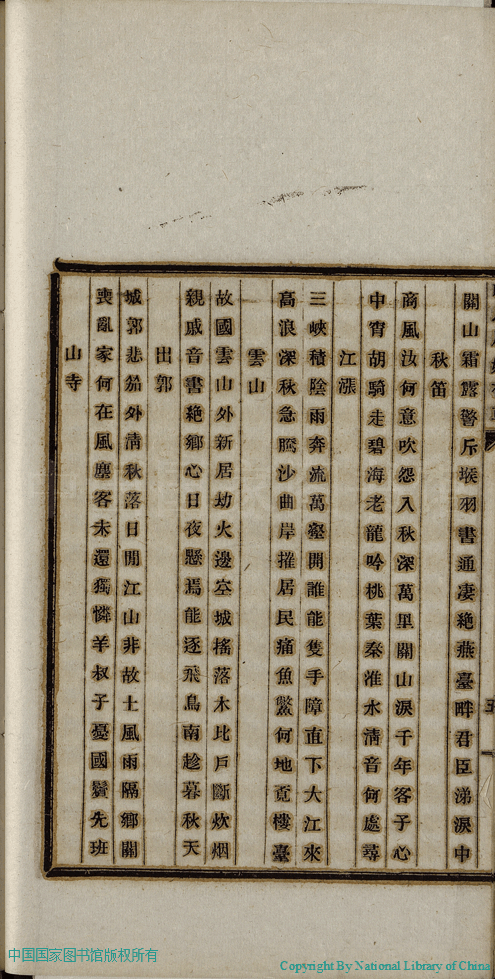 關山霜露警斥堠羽書通凄絶燕臺畔君臣涕淚中
秋笛
商風汝何意吹怨入秋深萬里關山淚千年客子心
中宵胡騎走碧海老龍吟桃葉秦淮水淸音何處尋
江漲
三峽積陰雨奔流萬壑開誰能隻手障直下大江來
高浪深秋急騰沙曲岸摧居民痛魚鱉何地覓樓臺
雲山
故國雲山外新居劫火邊空城搖落木比戶斷炊烟
親戚音書絶鄉心日夜懸焉能逐飛鳥南趁暮秋天
出郭
城郭悲笳外淸秋落日閒江山非故土風雨隔鄉關
喪亂家何在風塵客未還獨憐羊叔子憂國鬢先班
山寺
中国国家图书馆版权所有
Copyright By National Library of China